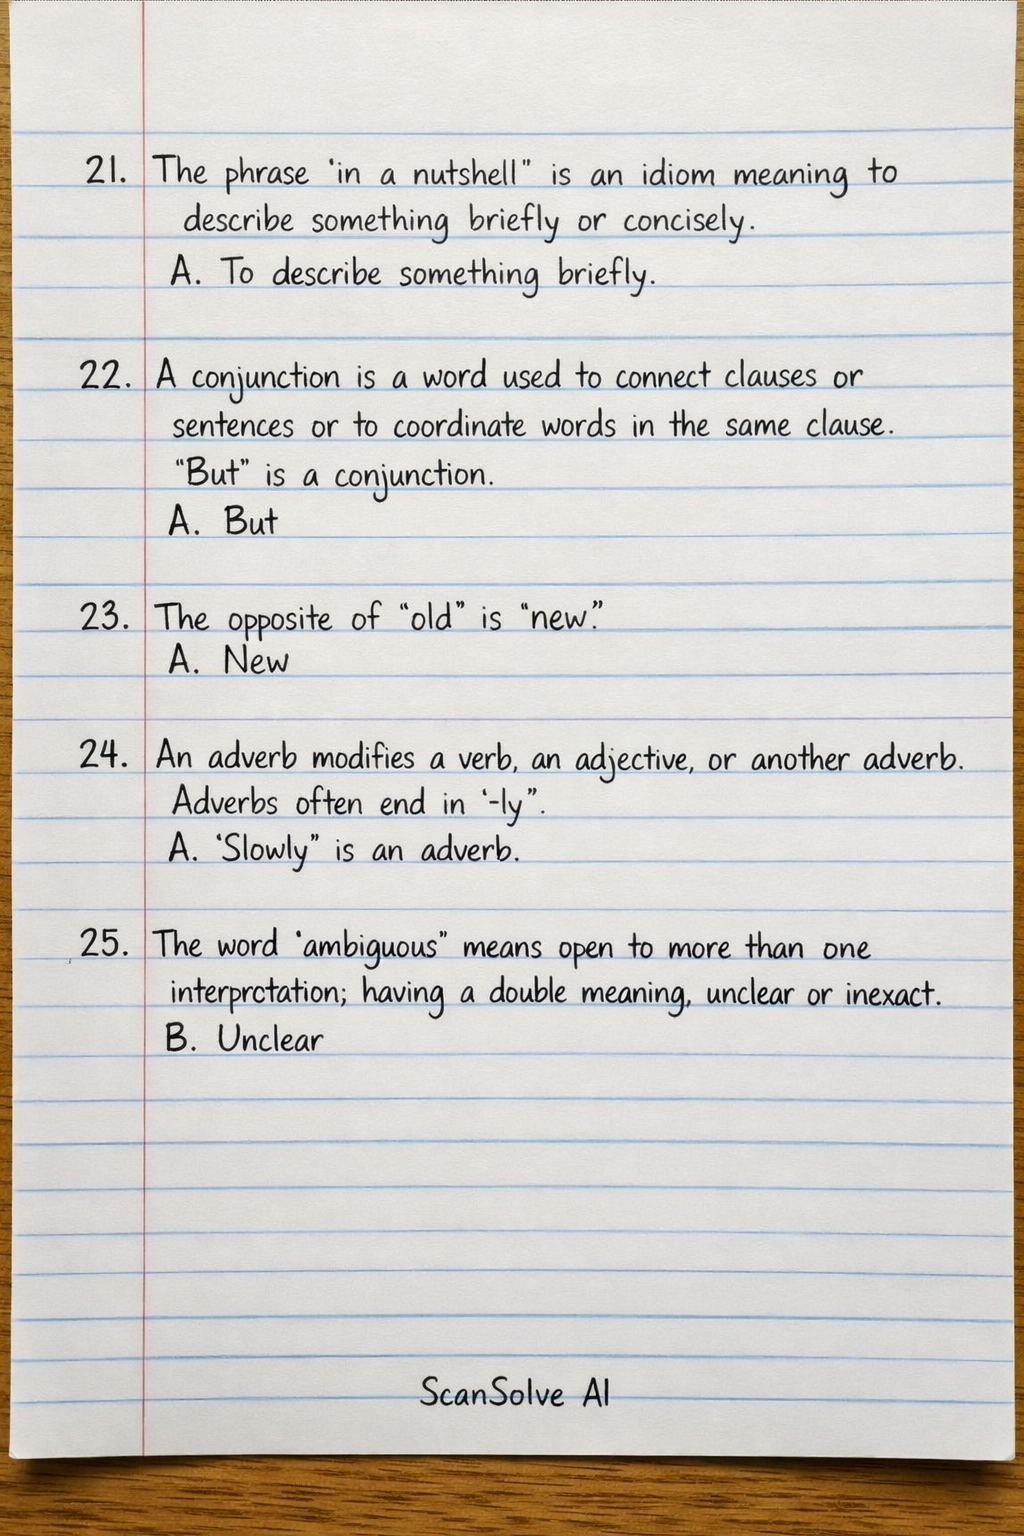 21. The phrase 'in a nutshell" is an idiom meaning to
describe something briefly or concisely.
A. To describe something briefly.
22. A conjunction is a word used to connect clauses or
sentences or to coordinate words in the same clause.
"But" is a conjunction.
A. But
23. The opposite of "old" is "new."
A. New
24. An adverb modifies a verb, an adjective, or another adverb.
Adverbs often end in '-ly".
A. 'Slowly" is an adverb.
25. The word 'ambiguous" means open to more than one
interprctation; having a double meaning, unclear or inexact.
B. Unclear
ScanSolve AI